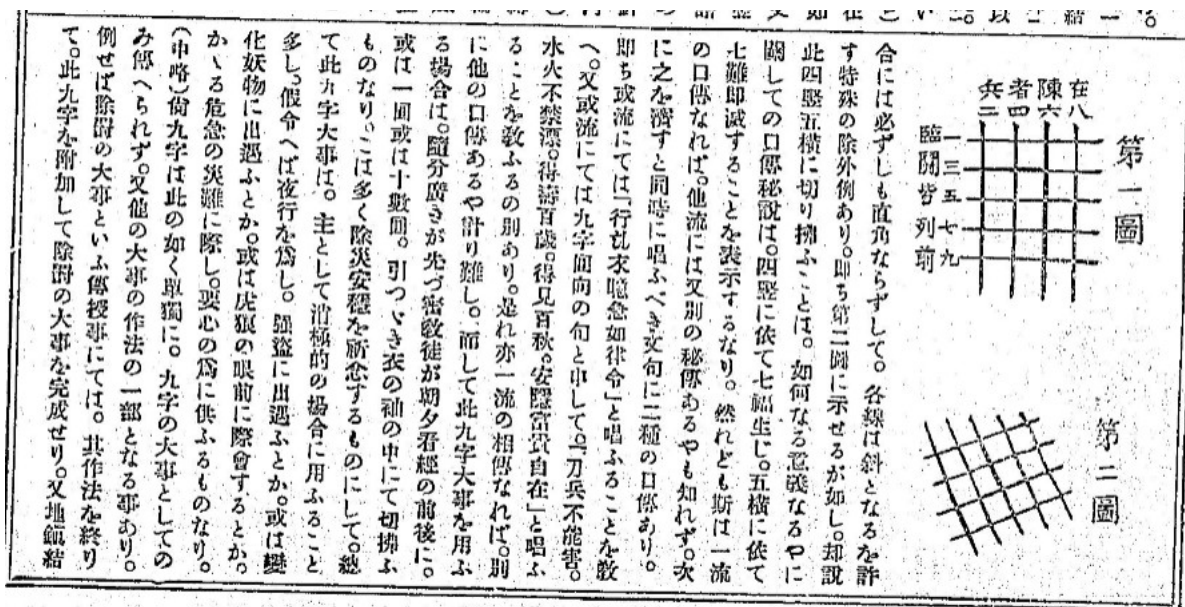 第一圖
在八
陳六
者四
兵二
一三五七九
臨鬪皆列前
第二圖
合には必ずしも直角ならずして。各線は斜となるを許
す特殊の除外例あり。即ち第二圖に示せるが如し。却說
此四竪五橫に切り拂ふことは。如何なる意義なるやに
關しての口傳秘說は。四竪に依て七福生し。五橫に依て
七難即滅することを表示するなり。然れども斯は一流
の口傳なれば。他流には又別の秘傳あるやも知れず。次
に之を濟すと同時に唱ふべき文句に二種の口傳あり。
即ち或流にては「行 求噫急如律令」と唱ふることを敎
へ。又或流にては九字回向の句と申して。「刀兵不能害。
水火不禁漂。得壽百歳。得見百秋。安隱富貴自在」と唱ふ
ることを敎ふるの別あり。是れ亦一流の相傳なれば。別
に他の口傳あるや計り難し。而して此九字大事を用ふ
る塲合は。隨分廣きが先づ密敎徒が朝夕看經の前後に。
或は一回或は十數回。引つゞき衣の袖の中にて切拂ふ
ものなり。こは多く除災安穩を祈念するものにして。總
て此九字大事は。主として消極的の塲合に用ふること
多し。假令へば夜行を爲し。强盜に出遇ふとか。或は變
化妖物に出遇ふとか。或は虎狼の眼前に際會するとか。
かゝる危急の災難に際し。要心の爲に供ふるものなり。
(中略)尙九字は此の如く單獨に。九字の大事としての
み傳へられず。又他の大事の作法の一部となる事あり。
例せば除 の大事といふ傳授事にては。其作法を終り
て。此九字を附加して除 の大事を完成せり。又地鎭結